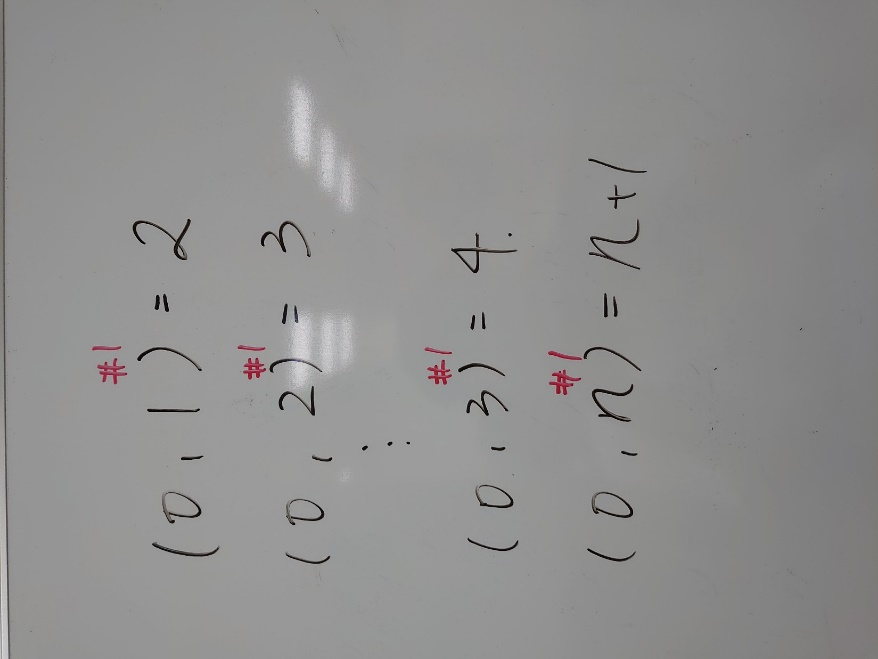 (0, 1)#1 = 2
(0, 2)#1 = 3
...
(0, 3)#1 = 4.
(0, n)#1 = n+1